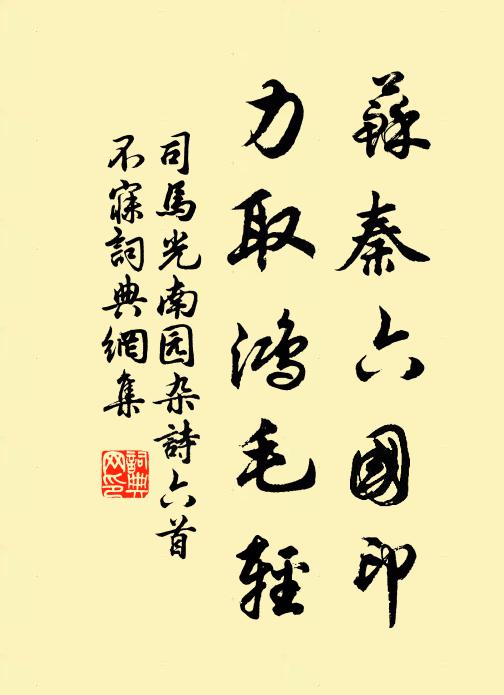 蘇秦六國印
力取鴻毛輕
司馬光南园杂詩六首
不寐詞典網集
詞典网印